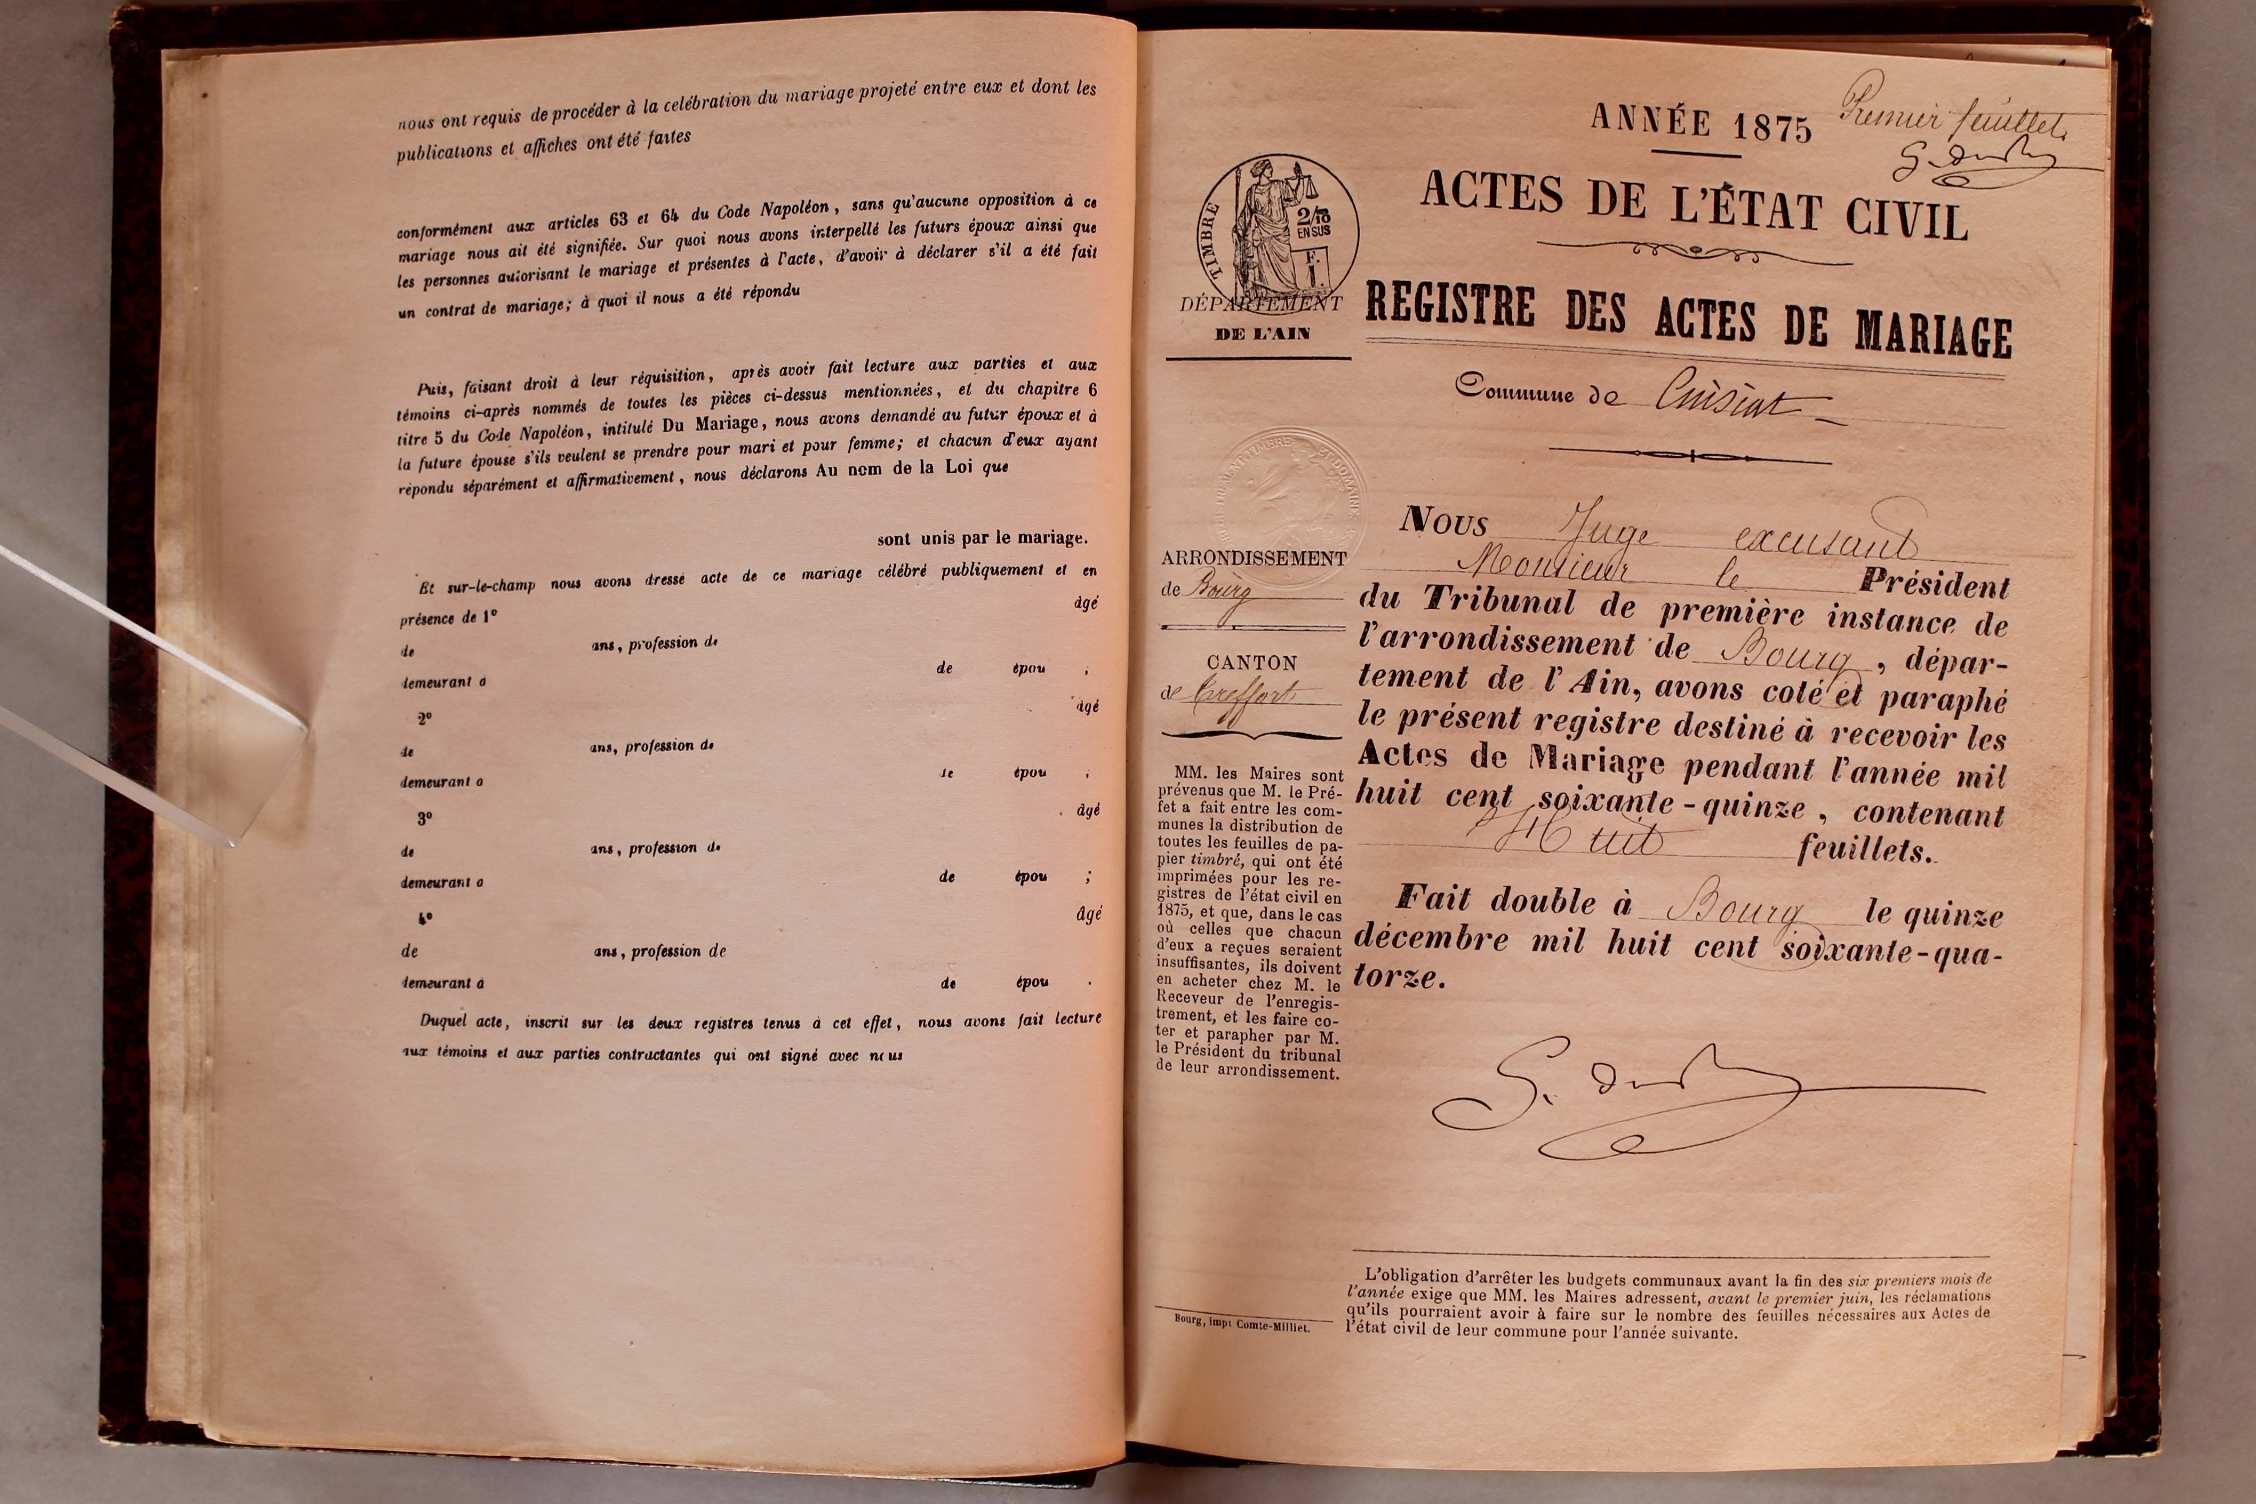 nous ont requis de procéder à la celébration du mariage projeté entre eux et dont les
publications et affiches ont été faites
conformément aux articles 63 et 64 du Code Napoléon, sans qu'aucune opposition à ce
mariage nous ait été signifiée. Sur quoi nous avons interpellé les futurs époux ainsi que
les personnes autorisant le mariage et présentes à l'acte, d'avoir à déclarer s'il a été fait
un contrat de mariage; à quoi il nous a été répondu
Puis, faisant droit à leur réquisition, après avoir fait lecture aux parties et aux
témoins ci-après nommés de toutes les pièces ci-dessus mentionnées, et du chapitre 6
titre 5 du Code Napoléon, intitulé Du Mariage, nous avons demandé au futur époux et à
la future épouse s'ils veulent se prendre pour mari et pour femme; et chacun d'eux ayant
répondu séparément et affirmativement, nous déclarons Au nom de la Loi que
sont unis par le mariage.
Et sur-le-champ nous avons dressé acte de ce mariage célébré publiquement et en
présence de 1° âgé
de ans, profession de
demeurant à de épou ;
2° âgé
de ans, profession de
demeurant à de épou ;
3° âgé
de ans, profession de
demeurant à de épou ;
4° âgé
de ans, profession de
demeurant à de épou .
Duquel acte, inscrit sur les deux registres tenus à cet effet, nous avons fait lecture
aux témoins et aux parties contractantes qui ont signé avec nous
Premier feuillet.
ANNÉE 1875
ACTES DE L'ÉTAT CIVIL
TIMBRE
2/10
EN SUS
DÉPARTEMENT
DE L'AIN
REGISTRE DES ACTES DE MARIAGE
Commune de Cuisiat
ARRONDISSEMENT
de Bourg
CANTON
de Treffort
MM. les Maires sont
prévenus que M. le Pré-
fet a fait entre les com-
munes la distribution de
toutes les feuilles de pa-
pier timbré, qui ont été
imprimées pour les re-
gistres de l'état civil en
1875, et que, dans le cas
où celles que chacun
d'eux a reçues seraient
insuffisantes, ils doivent
en acheter chez M. le
Receveur de l'enregis-
trement, et les faire co-
ter et parapher par M.
le Président du tribunal
de leur arrondissement.
Bourg, impt Comte-Milliet.
Nous Juge excusant
Monsieur le Président
du Tribunal de première instance de
l'arrondissement de Bourg, dépar-
tement de l'Ain, avons coté et paraphé
le présent registre destiné à recevoir les
Actes de Mariage pendant l'année mil
huit cent soixante-quinze, contenant
Huit feuillets.
Fait double à Bourg le quinze
décembre mil huit cent soixante-qua-
torze.
L'obligation d'arrêter les budgets communaux avant la fin des six premiers mois de
l'année exige que MM. les Maires adressent, avant le premier juin, les réclamations
qu'ils pourraient avoir à faire sur le nombre des feuilles nécessaires aux Actes de
l'état civil de leur commune pour l'année suivante.